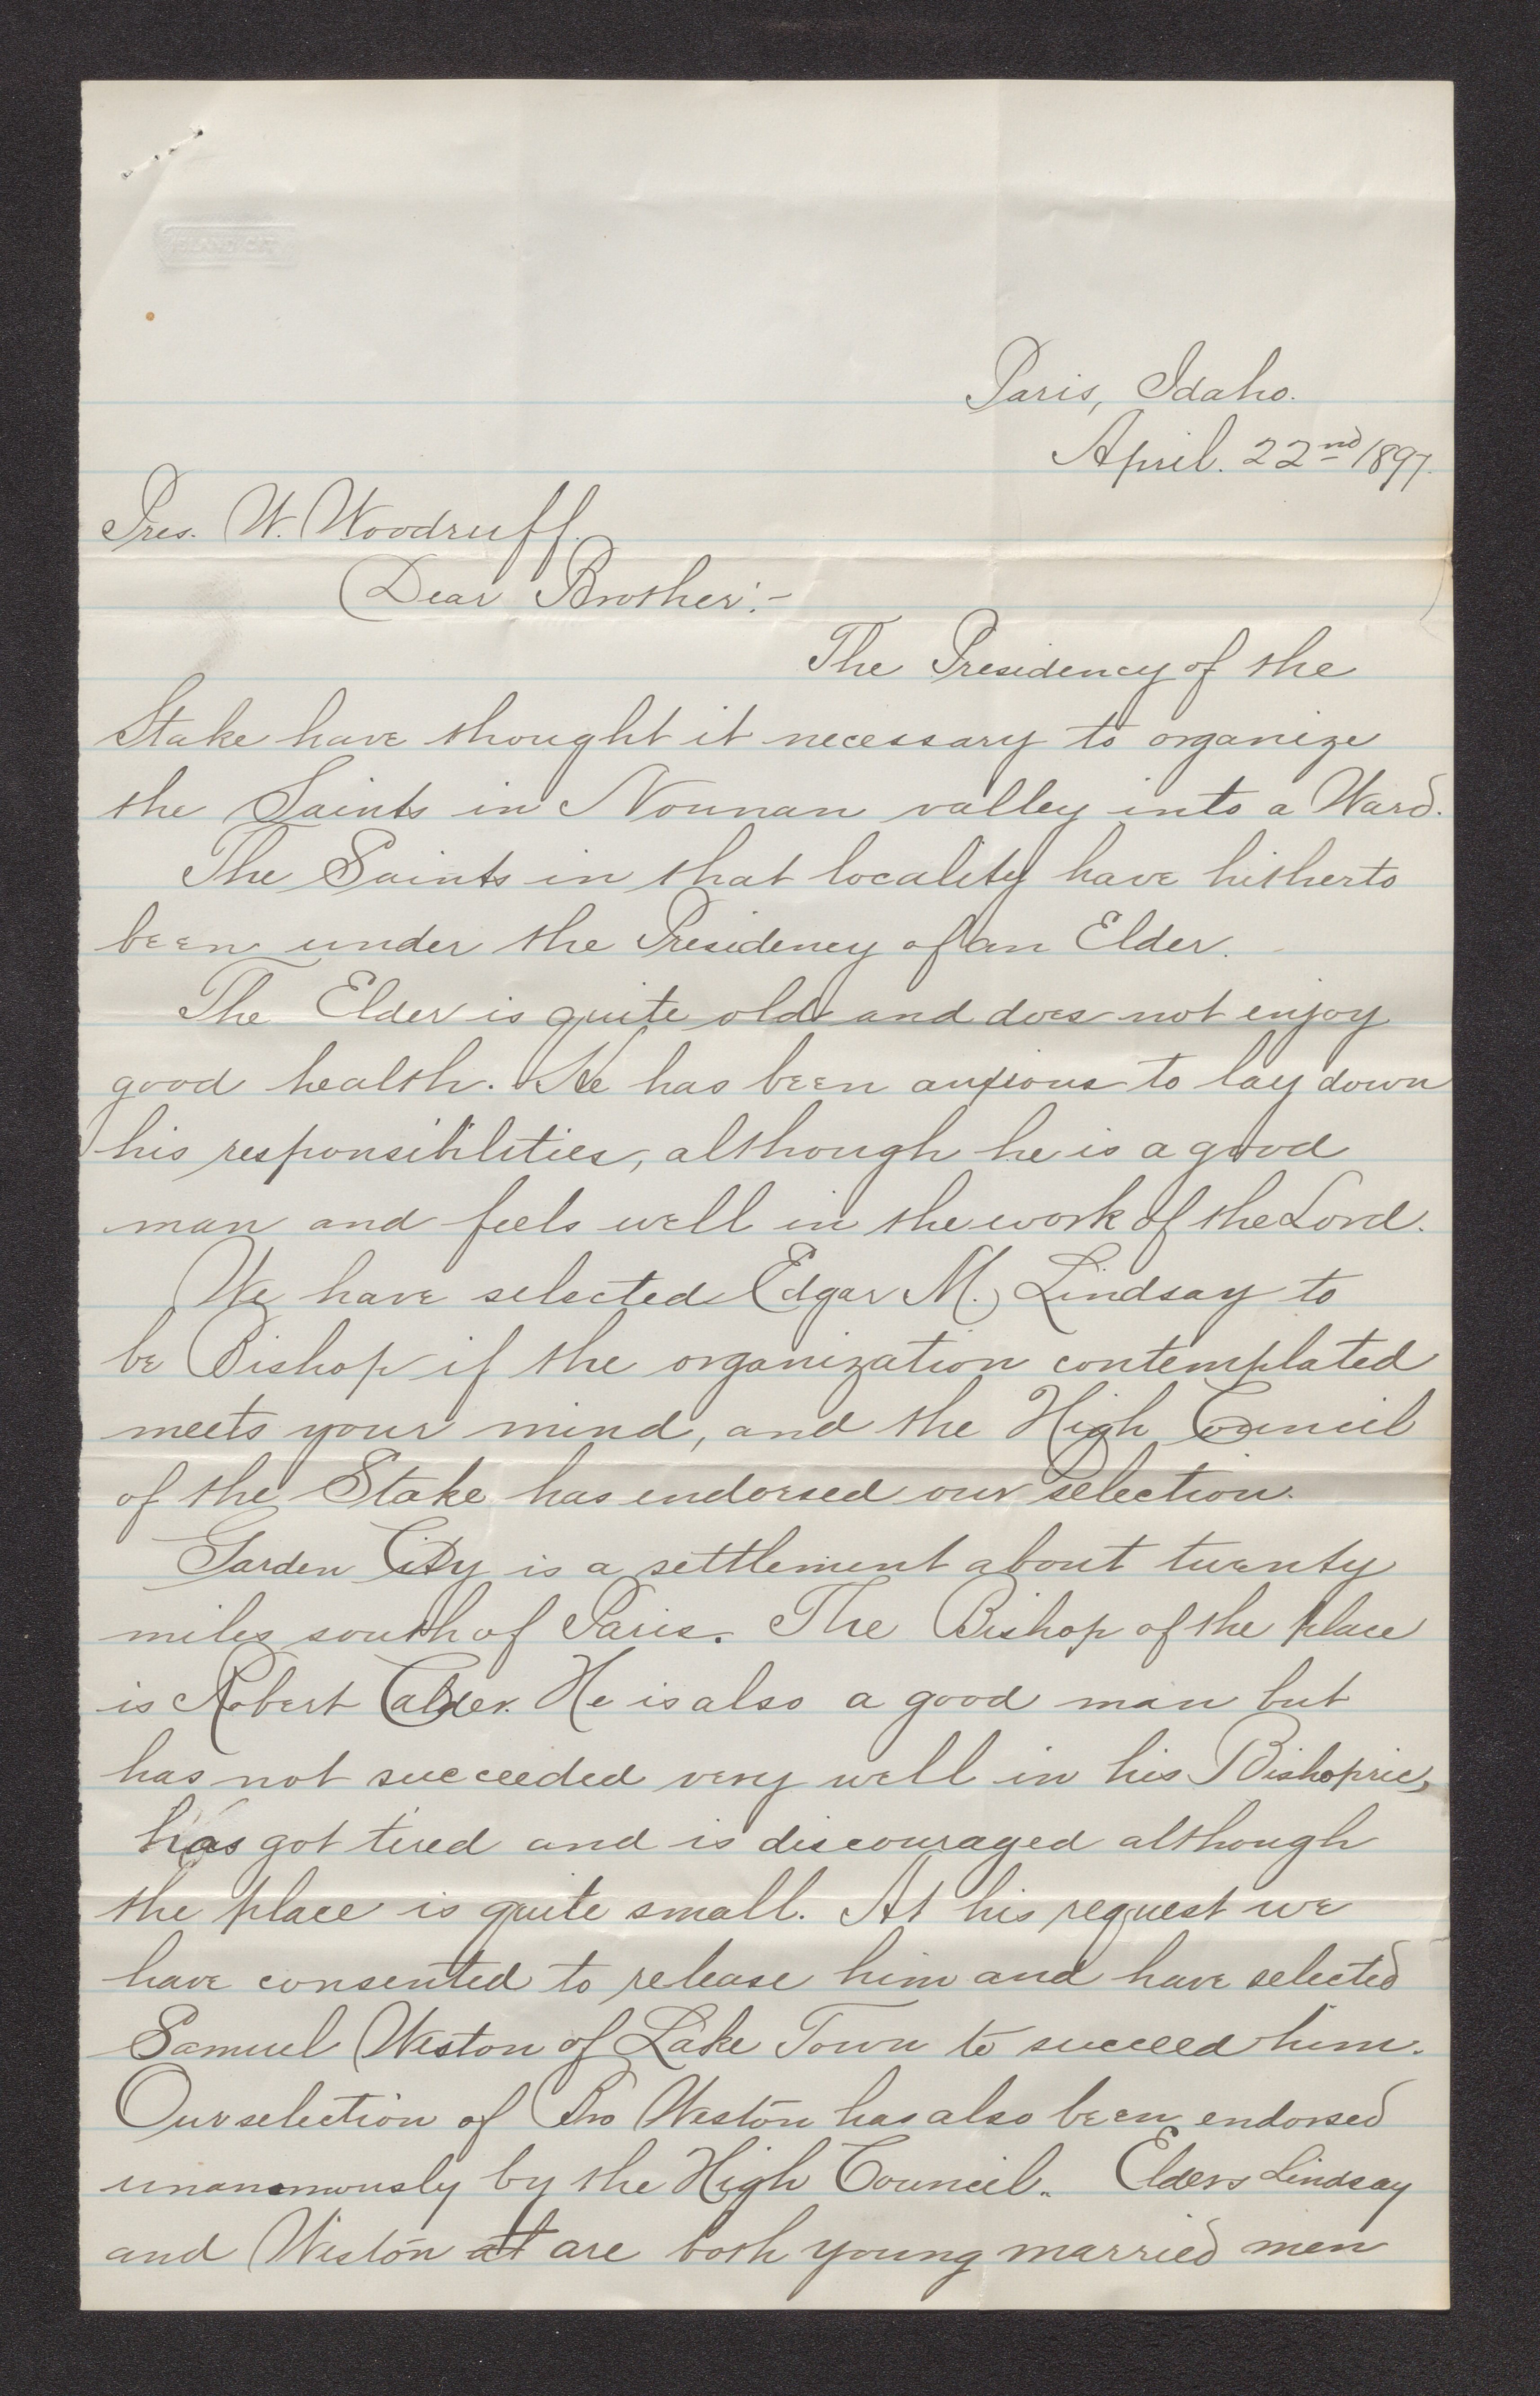 Paris, Idaho.
April. 22nd 1897.
Pres. W. Woodruff.
Dear Brother:-
The Presidency of the
Stake have thought it necessary to organize
the Saints in Nounan valley into a Ward.
The Saints in that locality have hitherto
been under the Presidency of an Elder.
The Elder is quite old and does not enjoy
good health. He has been anxious to lay down
his responsibilities, although he is a good
man and feels well in the work of the Lord.
We have selected Edgar M. Lindsay to
be Bishop if the organization contemplated
meets your mind, and the High Council
of the Stake has endorsed our selection.
Garden City is a settlement about twenty
miles south of Paris. The Bishop of the place
is Robert Calder. He is also a good man but
has not succeeded very well in his Bishopric,
has got tired and is discouraged although
the place is quite small. At his request we
have consented to release him and have selected
Samuel Weston of Lake Town to succeed him.
Our selection of Bro Weston has also been endorsed
unanomously by the High Council. Elders Lindsay
and Weston at are both young married men